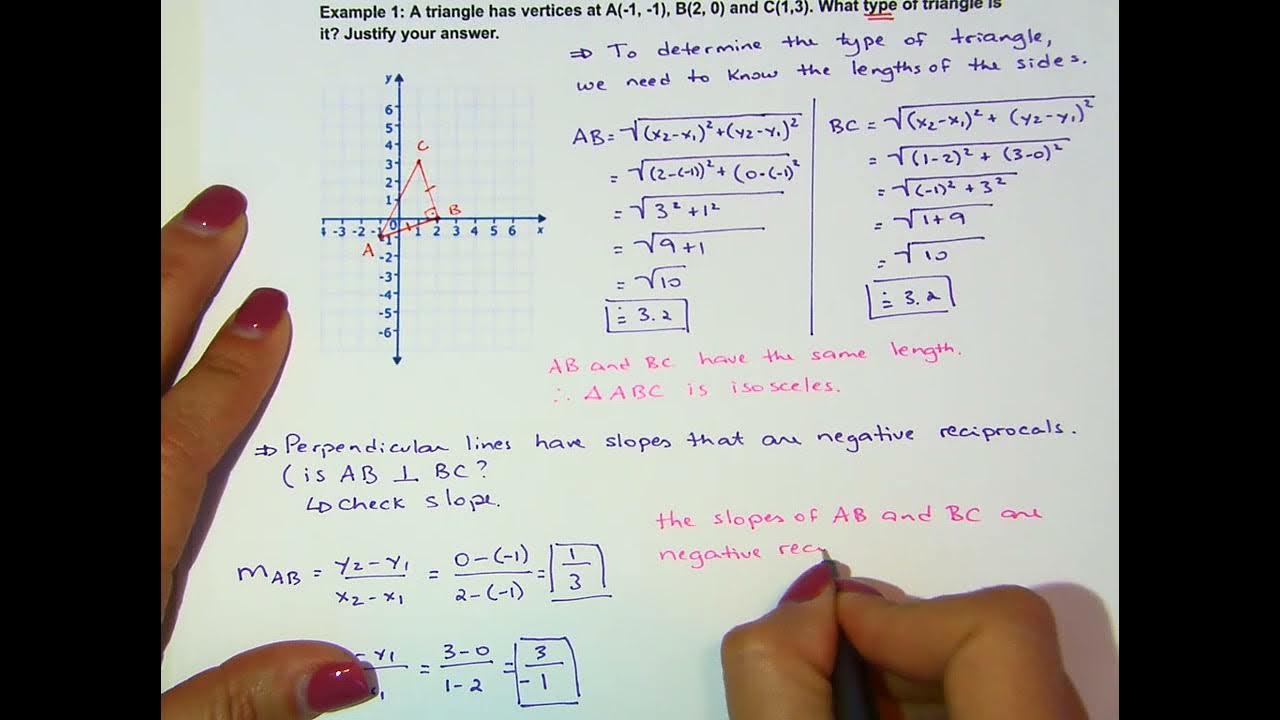 Example 1: A triangle has vertices at A(-1, -1), B(2, 0) and C(1,3). What type of triangle is
it? Justify your answer.
⇒ To determine the type of triangle,
we need to know the lengths of the sides.
y
6
5
4
3
2
1
-3 -2 -1 0 1 2 3 4 5 6 x
-1
-2
-3
-4
-5
-6
A
B
C
AB = √(x₂-x₁)²+(y₂-y₁)²
= √(2-(-1))²+(0-(-1)²
= √3²+1²
= √9+1
= √10
≐ 3.2
BC = √(x₂-x₁)²+(y₂-y₁)²
= √(1-2)²+(3-0)²
= √(-1)²+3²
= √1+9
= √10
≐ 3.2
AB and BC have the same length.
∴ △ABC is isosceles.
⇒ Perpendicular lines have slopes that are negative reciprocals.
(is AB ⊥ BC?
↳ check slope.
mAB = y₂-y₁/x₂-x₁ = 0-(-1)/2-(-1) = 1/3
-y₁/x₁ = 3-0/1-2 = 3/-1
the slopes of AB and BC are
negative rec